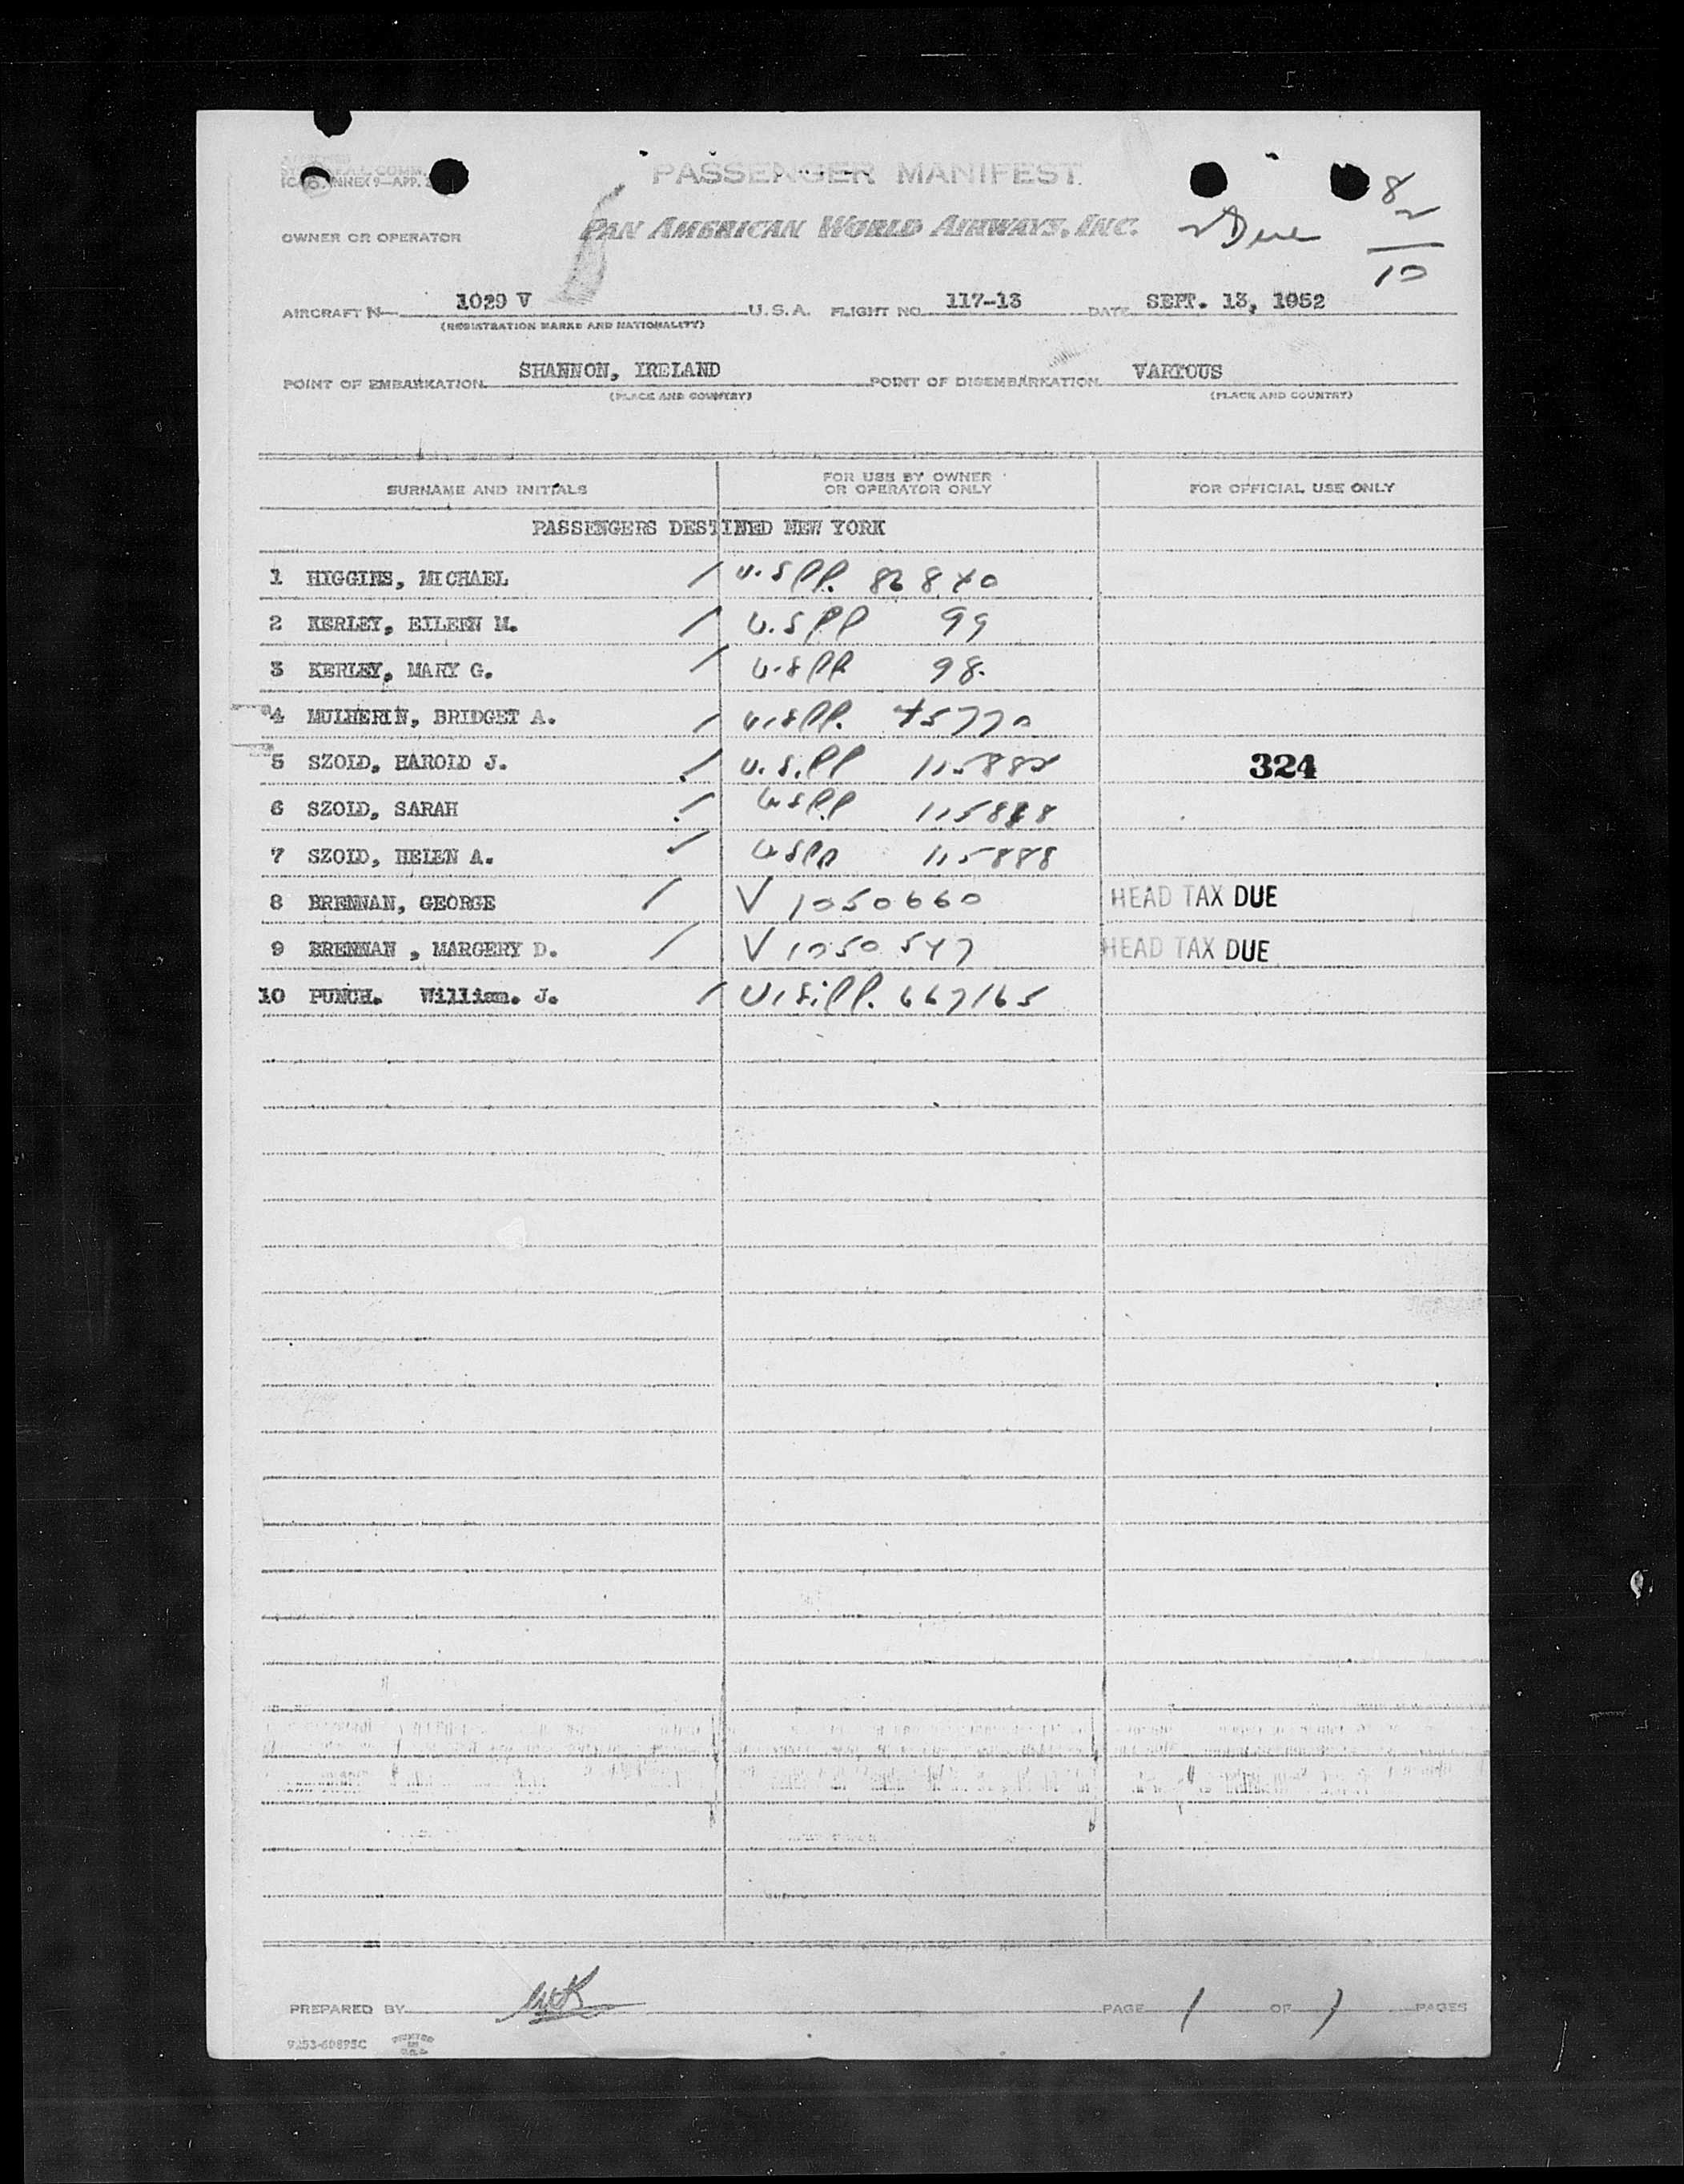 PASSENGER MANIFEST
ANNEX 9—APP.
8
2
10
OWNER OR OPERATOR PAN AMERICAN WORLD AIRWAYS, INC. 2 Due
AIRCRAFT N— 1029 V U.S.A. FLIGHT NO. 117-13 DATE SEPT. 13, 1952
(REGISTRATION MARKS AND NATIONALITY)
POINT OF EMBARKATION SHANNON, IRELAND POINT OF DISEMBARKATION VARIOUS
(PLACE AND COUNTRY) (PLACE AND COUNTRY)
SURNAME AND INITIALS FOR USE BY OWNER OR OPERATOR ONLY FOR OFFICIAL USE ONLY
PASSENGERS DESTINED NEW YORK
1 HIGGINS, MICHAEL / U.S PP. 86840
2 KERLEY, EILEEN M. / U.S PP 99
3 KERLEY, MARY G. / U.S PP 98.
4 MULHERIN, BRIDGET A. / U.S PP. 45770
5 SZOLD, HAROLD J. / U.S.PP 115882 324
6 SZOLD, SARAH / U S P.P 115888
7 SZOLD, HELEN A. / U S PP 115888
8 BRENNAN, GEORGE / V 1050660 HEAD TAX DUE
9 BRENNAN , MARGERY D. / V 1050547 HEAD TAX DUE
10 PUNCH. William. J. / U.S.PP. 667165
PREPARED BY WK PAGE 1 OF 1 PAGES
9253-60895C PRINTED IN U.S.A.